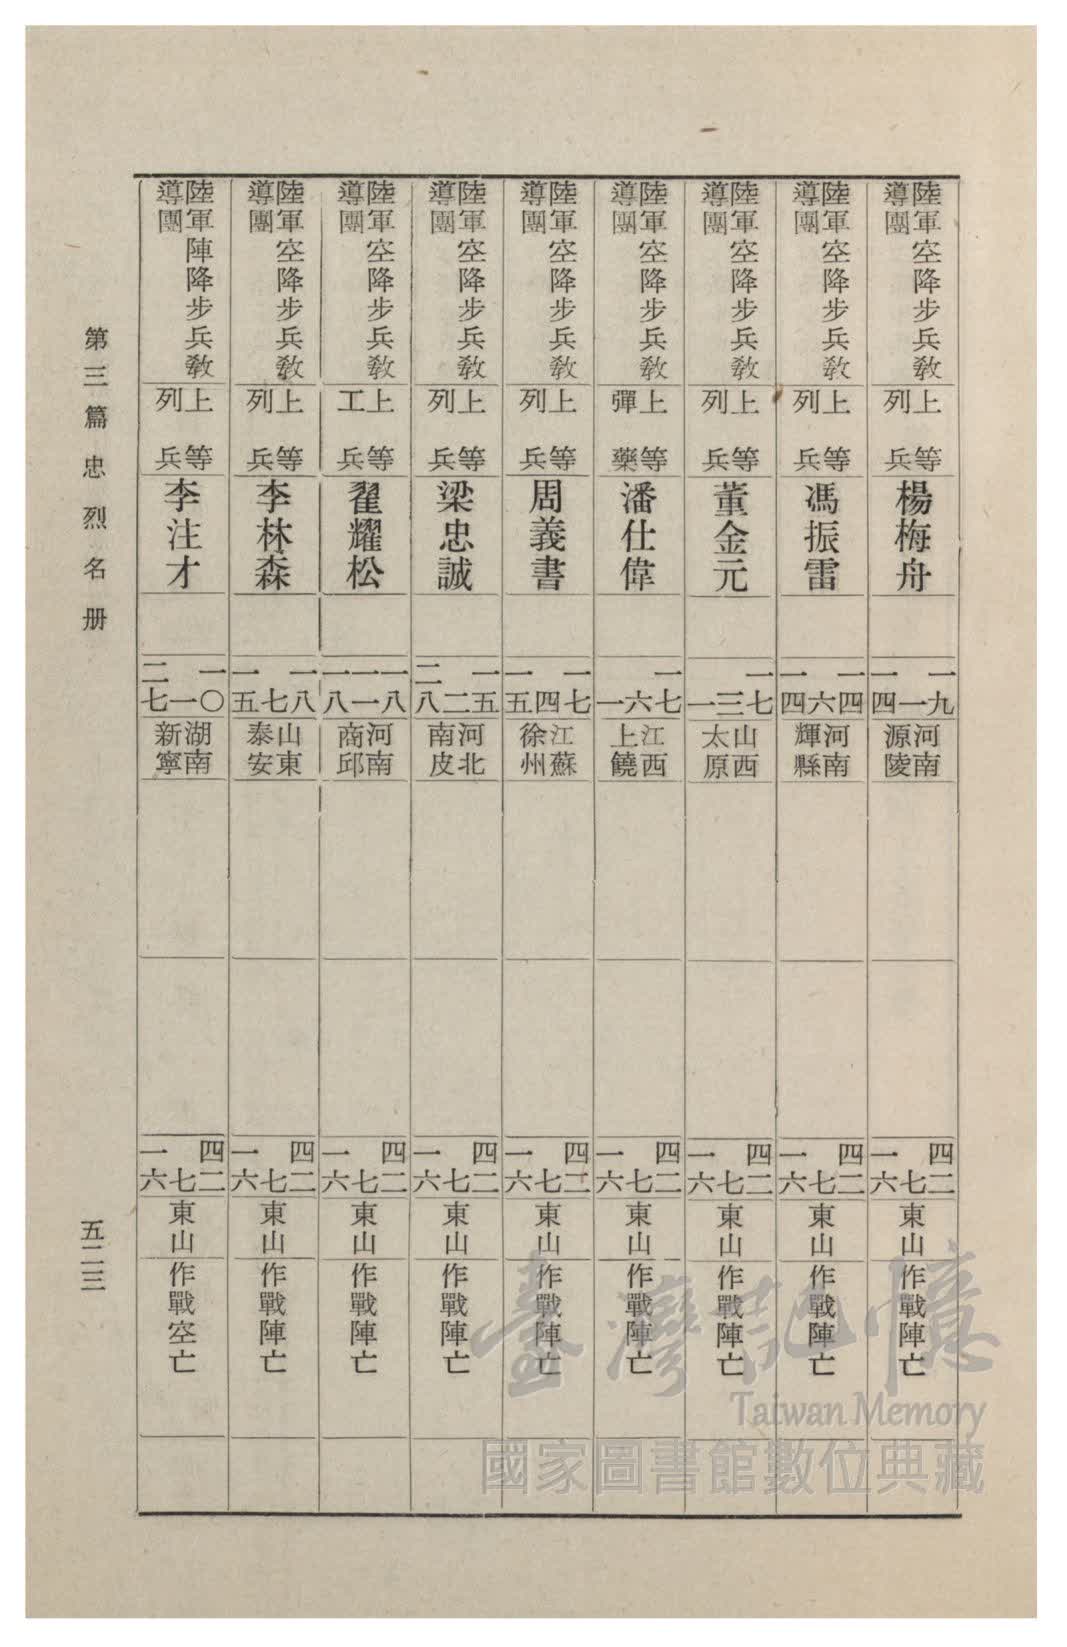 陸軍空降步兵教
導團
上等
列兵
楊梅舟
一九
一
一四
河南
源陵
四二
七
一六
東山
作戰陣亡
陸軍空降步兵教
導團
上等
列兵
馮振雷
一四
六
一四
河南
輝縣
四二
七
一六
東山
作戰陣亡
陸軍空降步兵教
導團
上等
列兵
董金元
一七
三
一
山西
太原
四二
七
一六
東山
作戰陣亡
陸軍空降步兵教
導團
上等
彈藥
潘仕偉
一七
六
一
江西
上饒
四二
七
一六
東山
作戰陣亡
陸軍空降步兵教
導團
上等
列兵
周義書
一七
四
一五
江蘇
徐州
四二
七
一六
東山
作戰陣亡
陸軍空降步兵教
導團
上等
列兵
梁忠誠
一五
二
二八
河北
南皮
四二
七
一六
東山
作戰陣亡
陸軍空降步兵教
導團
上等
工兵
翟耀松
一八
一一
一八
河南
商邱
四二
七
一六
東山
作戰陣亡
陸軍空降步兵教
導團
上等
列兵
李林森
一八
七
一五
山東
泰安
四二
七
一六
東山
作戰陣亡
陸軍陣降步兵教
導團
上等
列兵
李注才
一〇
一
二七
湖南
新寧
四二
七
一六
東山
作戰空亡
第三篇忠烈名册
五二三
臺灣記憶
Taiwan Memory
國家圖書館數位典藏